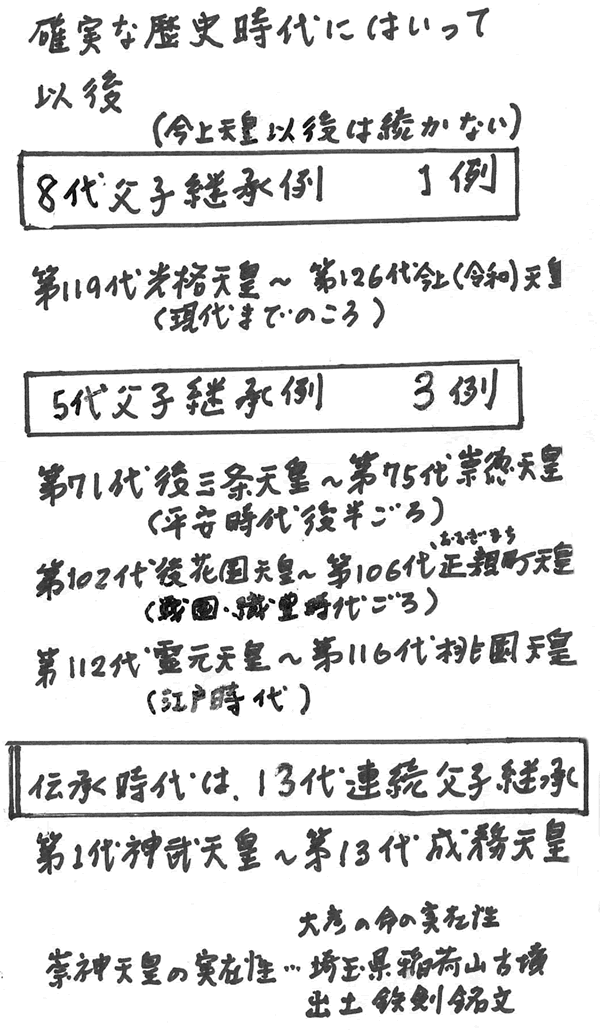 確実な歴史時代にはいって
以後
(今上天皇以後は続かない)
8代父子継承例 1例
第119代光格天皇～第126代今上(令和)天皇
(現代までのころ)
5代父子継承例 3例
第71代後三条天皇～第75代崇徳天皇
(平安時代後半ごろ)
おおぎまち
第102代後花園天皇～第106代正親町天皇
(戦国・織豊時代ごろ)
第112代霊元天皇～第116代桃園天皇
(江戸時代)
伝承時代は、13代連続父子継承
第1代神武天皇～第13代成務天皇
大彦の命の実在性
崇神天皇の実在性…埼玉県稲荷山古墳
出土鉄剣銘文